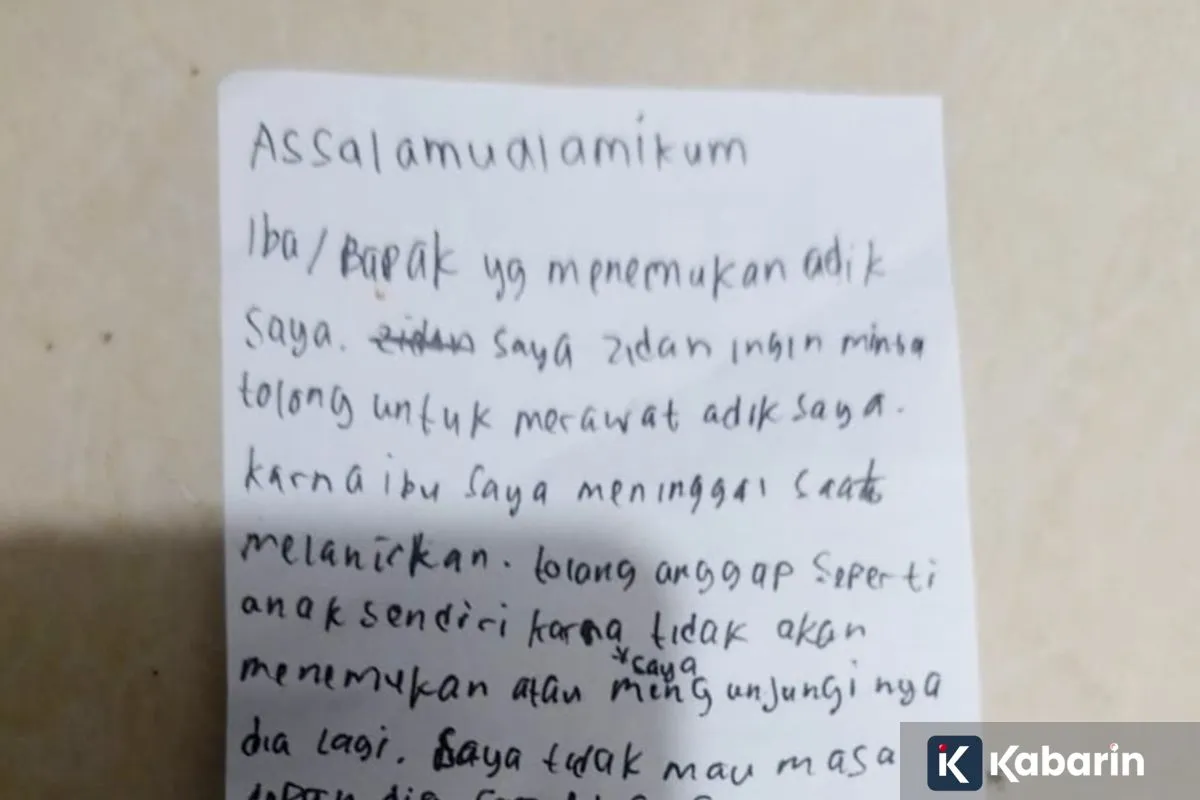 Assalamualamikum
Iba/Bapak yg menemukan adik
saya. zidan saya zidan ingin minta
tolong untuk merawat adik saya.
karna ibu saya meninggal saat
melanirkan. tolong anggap seperti
anak sendiri karna tidak akan
*saya
menemukan atau mengunjungi nya
dia lagi. Saya tidak mau masa
Kabarin